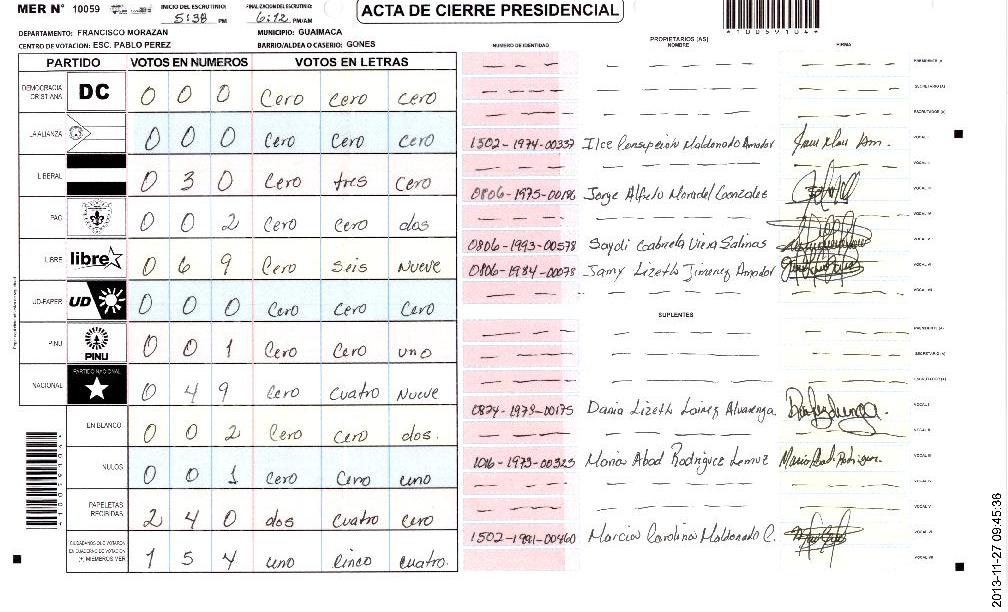 MER N° 10059 INICIO DEL ESCRUTINIO: 5:38 PM FINALIZACION DEL ESCRUTINIO: 6:12 PM/AM
ACTA DE CIERRE PRESIDENCIAL
*10059104*
DEPARTAMENTO: FRANCISCO MORAZAN MUNICIPIO: GUAIMACA
CENTRO DE VOTACION: ESC. PABLO PEREZ BARRIO/ALDEA O CASERIO: GONES
PARTIDO VOTOS EN NUMEROS VOTOS EN LETRAS
DEMOCRACIA CRISTIANA DC 0 0 0 Cero cero cero
LA ALIANZA 0 0 0 Cero Cero Cero
LIBERAL 0 3 0 Cero tres Cero
PAC 0 0 2 Cero Cero dos
LIBRE libre 0 6 9 Cero Seis Nueve
UD-FAPER UD 0 0 0 Cero Cero Cero
PINU PINU 0 0 1 Cero Cero uno
NACIONAL PARTIDO NACIONAL 0 4 9 Cero Cuatro Nueve
EN BLANCO 0 0 2 Cero Cero dos.
NULOS 0 0 1 Cero Cero uno
PAPELETAS RECIBIDAS 2 4 0 dos Cuatro Cero
CIUDADANOS QUE VOTARON EN CUADERNO DE VOTACION (+) MIEMBROS MER 1 5 4 uno Cinco cuatro.
NUMERO DE IDENTIDAD PROPIETARIOS (AS) NOMBRE FIRMA
PRESIDENTE (A)
SECRETARIO (A)
ESCRUTADOR (A)
1502-1974-00337 Ilce Consepción Maldonado Amador VOCAL I
VOCAL II
0806-1975-00186 Jorge Alfredo Moradel Gonzales VOCAL III
VOCAL IV
0806-1993-00578 Saydi Gabriela Viera Salinas VOCAL V
0806-1984-00078 Samy Lizeth Jimenez Amador VOCAL VI
VOCAL VII
SUPLENTES
PRESIDENTE (A)
SECRETARIO (A)
ESCRUTADOR (A)
0824-1979-00175 Dania Lizeth Lainez Alvarenga VOCAL I
VOCAL II
1016-1973-00323 Maria Abad Rodriguez Lemuz VOCAL III
VOCAL IV
VOCAL V
1502-1991-00460 Marcia Carolina Maldonado C. VOCAL VI
VOCAL VII
2013-11-27 09:45:36